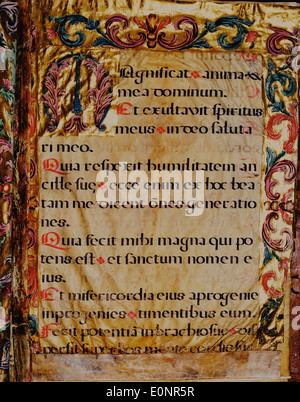 Magnificat anima
mea dominum.
Et exultavit spiritus
meus in deo saluta
ri meo.
Quia respexit humilitatem an
cille sue ecce enim ex hoc bea
tam me dicent o͞nes generatio
nes.
Quia fecit mihi magna qui po
tens est et sanctum nomen e
ius.
Et misericordia eius aprogenie
inprogenies timentibus eum.
Fecit potentiā inbrachio suo
persit superbos mente cordis sui
alamy stock photo
E0NR5R
www.alamy.com